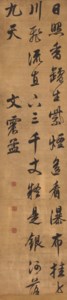 日照香爐生紫煙遙看瀑布挂前
川飛流直下三千丈疑是銀河落
九天 文震孟